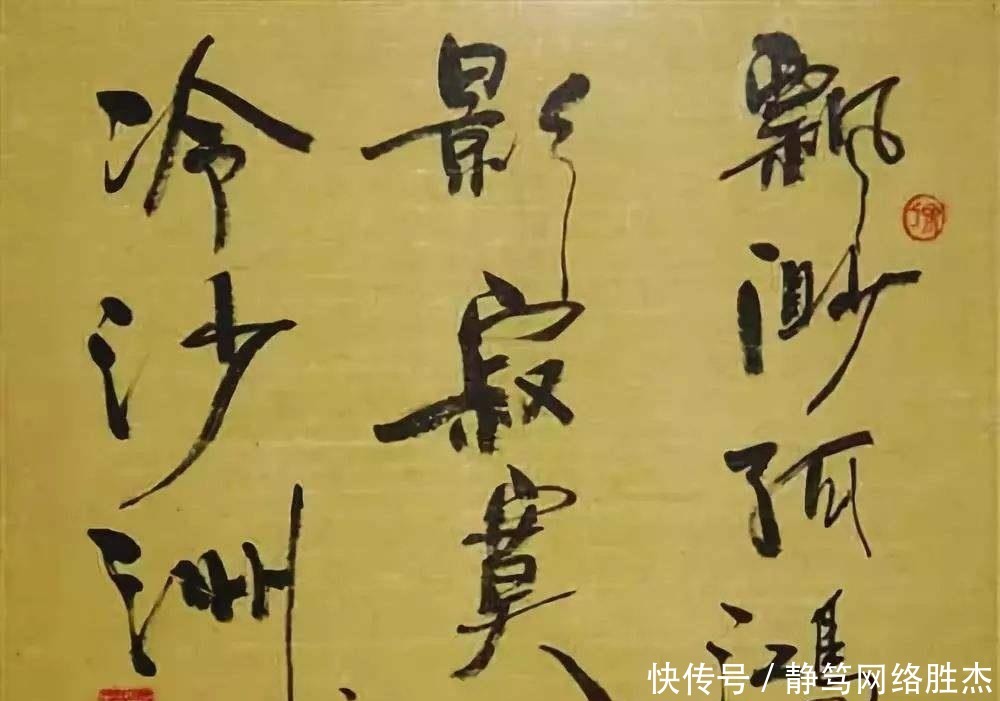 飘渺孤鸿
影寂寞
冷沙洲
快传号 / 静笃网络胜杰